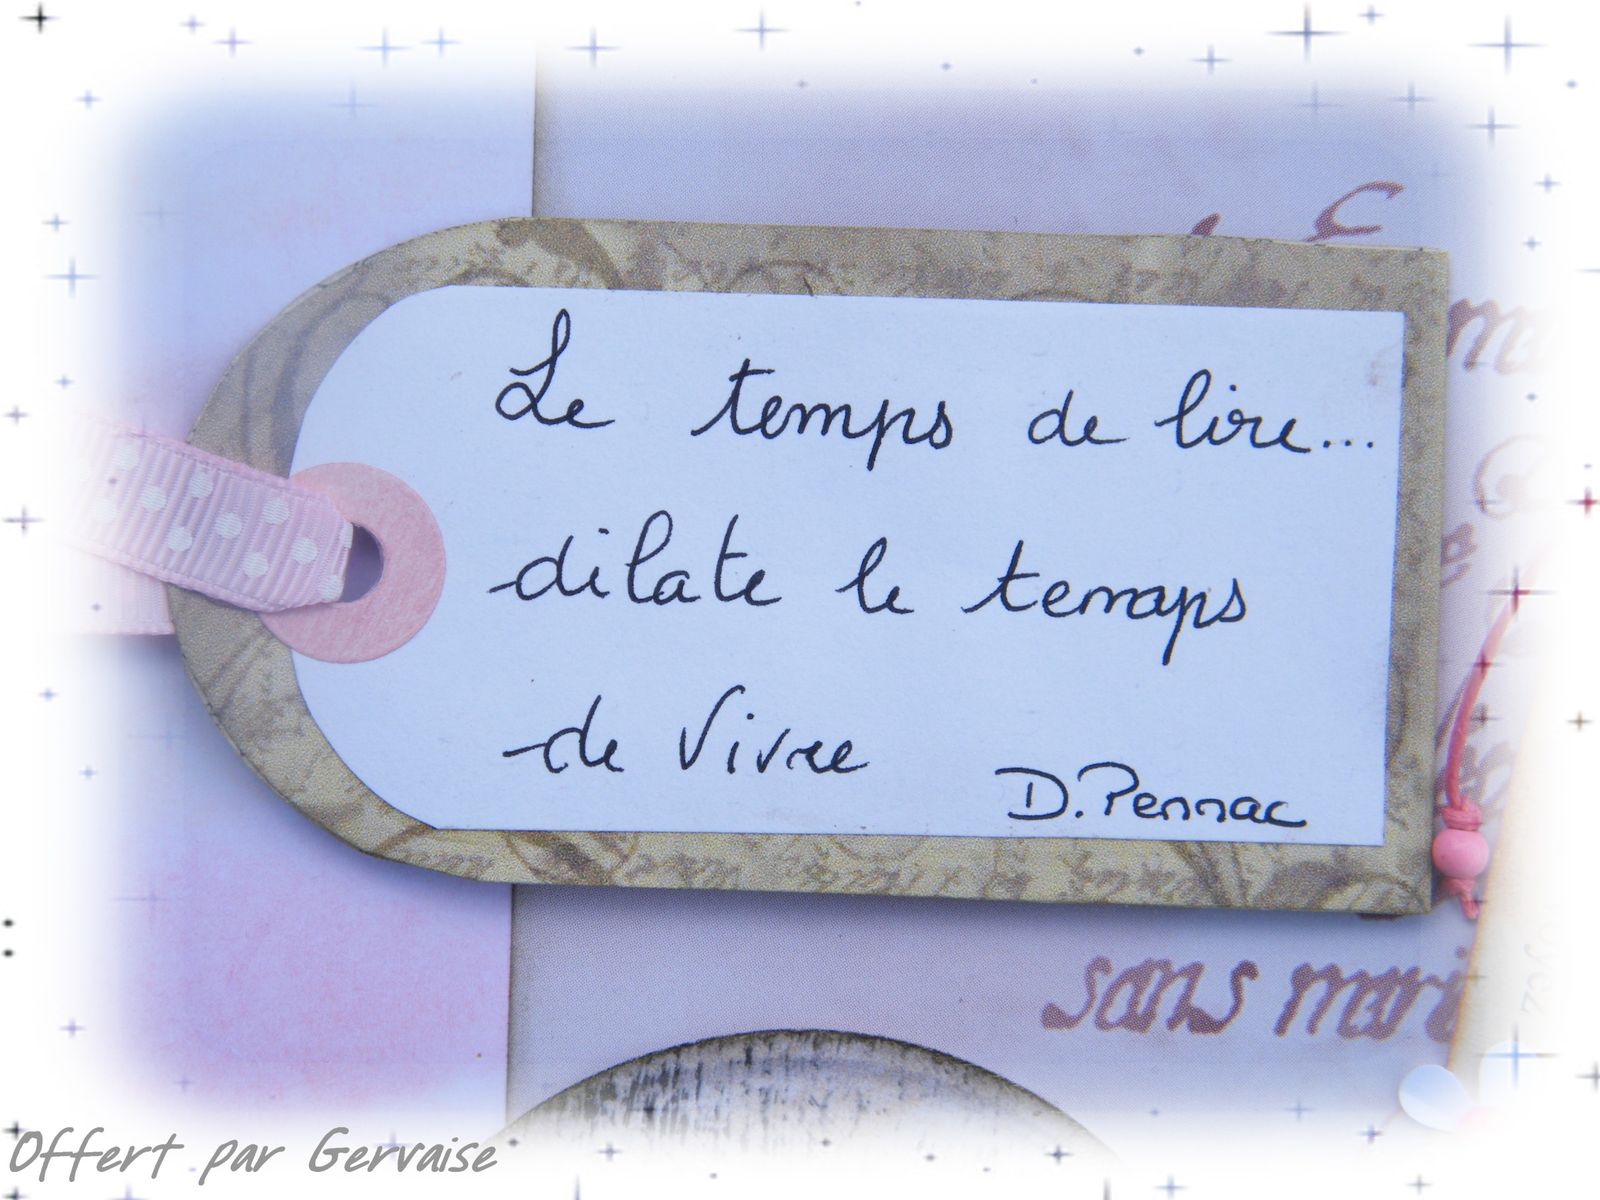 Le temps de lire...
dilate le temps
de vivre
D. Pennac
sans mari
Offert par Gervaise